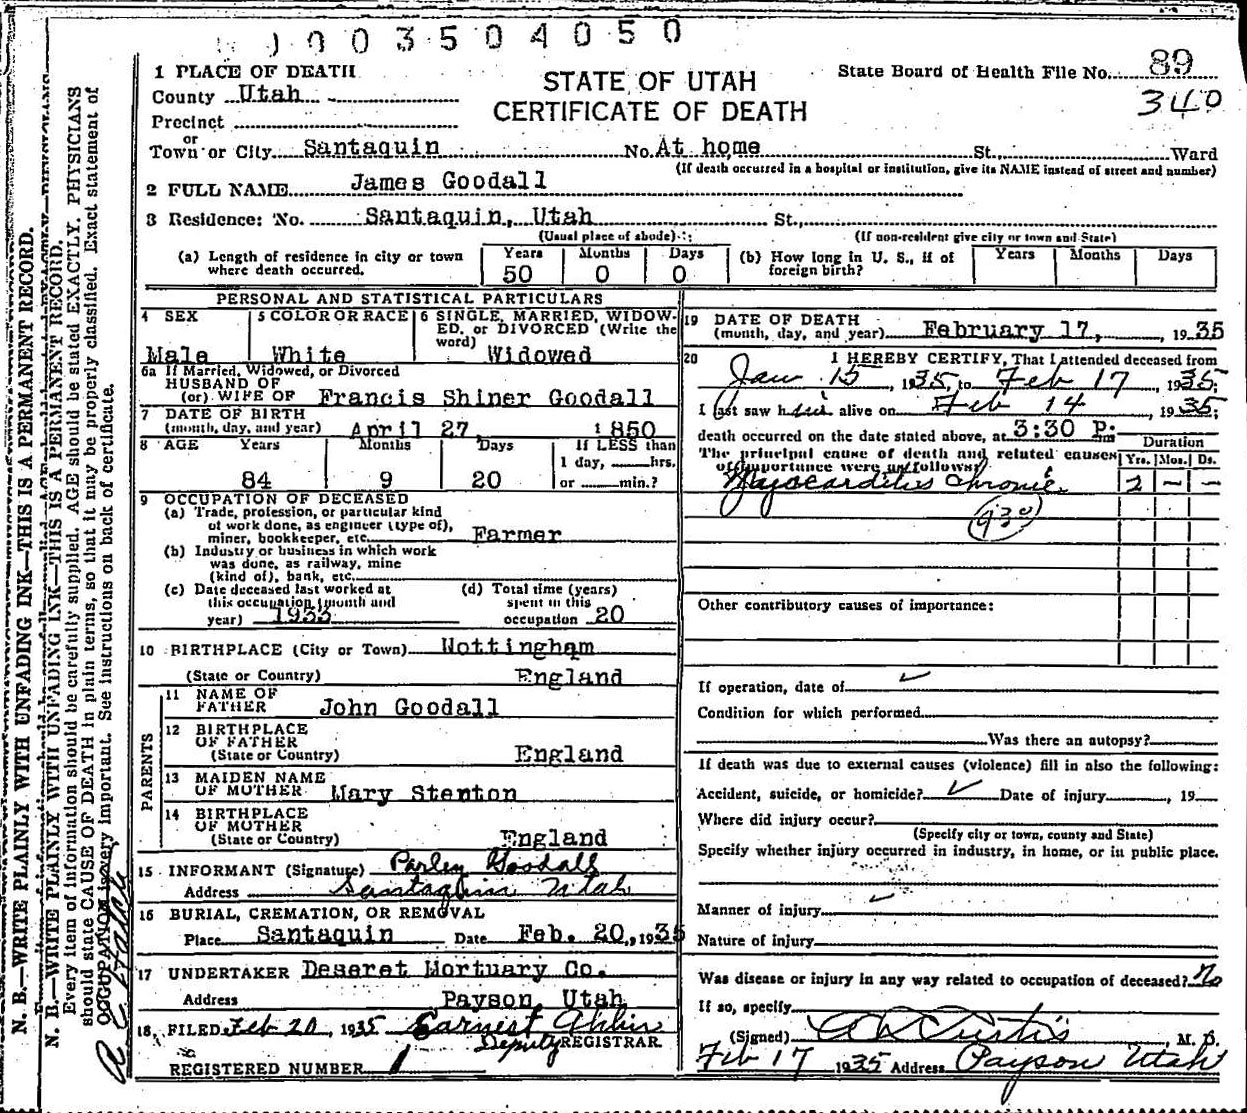 0003504050
1 PLACE OF DEATH
STATE OF UTAH
CERTIFICATE OF DEATH
State Board of Health File No. 89
340
County Utah
Precinct
or
Town or City Santaquin No. At home St., Ward
(If death occurred in a hospital or institution, give its NAME instead of street and number)
2 FULL NAME James Goodall
3 Residence: No. Santaquin, Utah St.,
(Usual place of abode) (If non-resident give city or town and State)
(a) Length of residence in city or town where death occurred. Years 50 Months 0 Days 0 (b) How long in U. S., if of foreign birth? Years Months Days
PERSONAL AND STATISTICAL PARTICULARS
4 SEX Male
5 COLOR OR RACE White
6 SINGLE, MARRIED, WIDOWED, or DIVORCED (Write the word) Widowed
6a If Married, Widowed, or Divorced
HUSBAND OF
(or) WIFE OF Francis Shiner Goodall
7 DATE OF BIRTH
(month, day, and year) April 27 1850
8 AGE Years 84 Months 9 Days 20 If LESS than 1 day, hrs. or min.?
9 OCCUPATION OF DECEASED
(a) Trade, profession, or particular kind
of work done, as engineer (type of),
miner, bookkeeper, etc. Farmer
(b) Industry or business in which work
was done, as railway, mine
(kind of), bank, etc.
(c) Date deceased last worked at
this occupation (month and
year) 1933
(d) Total time (years)
spent in this
occupation 20
10 BIRTHPLACE (City or Town) Nottingham
(State or Country) England
PARENTS
11 NAME OF
FATHER John Goodall
12 BIRTHPLACE
OF FATHER
(State or Country) England
13 MAIDEN NAME
OF MOTHER Mary Stenton
14 BIRTHPLACE
OF MOTHER
(State or Country) England
15 INFORMANT (Signature) Parley Goodall
Address Santaquin Utah
16 BURIAL, CREMATION, OR REMOVAL
Place Santaquin Date Feb. 20, 1935
17 UNDERTAKER Deseret Mortuary Co.
Address Payson, Utah
18 FILED Feb 20 1935 Earnest
Deputy REGISTRAR
REGISTERED NUMBER 1
19 DATE OF DEATH
(month, day, and year) February 17, 1935
20 I HEREBY CERTIFY, That I attended deceased from
Jan 15, 1935, to Feb 17, 1935;
I last saw him alive on Feb 14, 1935;
death occurred on the date stated above, at 3:30 P. m
The principal cause of death and related causes
of importance were as follows:
Duration
Yrs. Mos. Ds.
Myocarditis Chronic 2 — —
930
Other contributory causes of importance:
If operation, date of ✓
Condition for which performed
Was there an autopsy?
If death was due to external causes (violence) fill in also the following:
Accident, suicide, or homicide? ✓ Date of injury, 19
Where did injury occur?
(Specify city or town, county and State)
Specify whether injury occurred in industry, in home, or in public place.
Manner of injury ✓
Nature of injury
Was disease or injury in any way related to occupation of deceased? No
If so, specify
(Signed) Curtis, M. D.
Feb 17 1935 Address Payson Utah
N. B.—WRITE PLAINLY WITH UNFADING INK—THIS IS A PERMANENT RECORD.
N. B.—WRITE PLAINLY WITH UNFADING INK—THIS IS A PERMANENT RECORD.
Every item of information should be carefully supplied. AGE should be stated EXACTLY. PHYSICIANS
should state CAUSE OF DEATH in plain terms, so that it may be properly classified. Exact statement of
OCCUPATION is very important. See instructions on back of certificate.